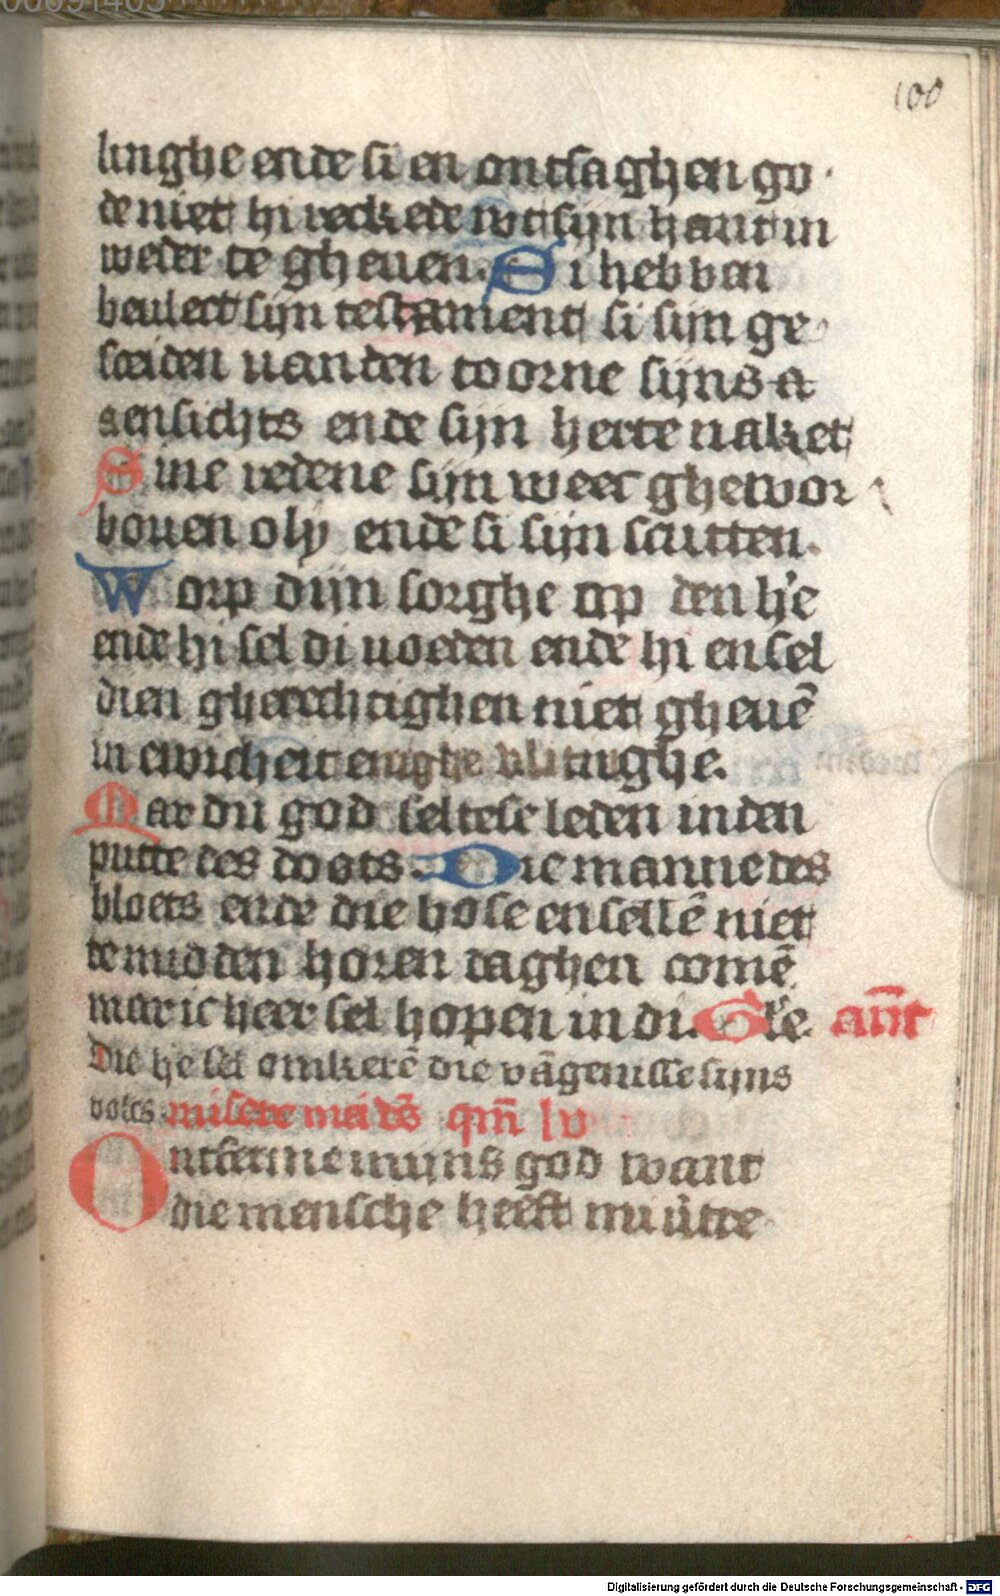 00091405
100
linghe ende si en ontsaghen go
de niet hi reckede wt sijn hant in
weder te gheuen. Si hebben
beulect sijn testament si sijn ge
sceiden uanden toorne sijns a
gensichts ende sijn herte naket
Sine redene sijn weec ghewor
bouen oly ende si sijn scutten.
Worp dijn sorghe op den he
ende hi sel di uoeden ende hi en sel
dien gherechtighen niet gheuē
in ewicheit enighe vluinghe.
Mar du god selt ese leden inden
putte des doots. Die manne des
bloets ende die bose en sellē niet
te midden horen daghen comē
mar ic heer sel hopen in di. Gle. ant
Die he sel omkerē die vāgenisse sijns
volcs. miserere mei deus qm̄ lv
Ontferme mijns god want
die mensche heeft mi uttre
Digitalisierung gefördert durch die Deutsche Forschungsgemeinschaft - DFG